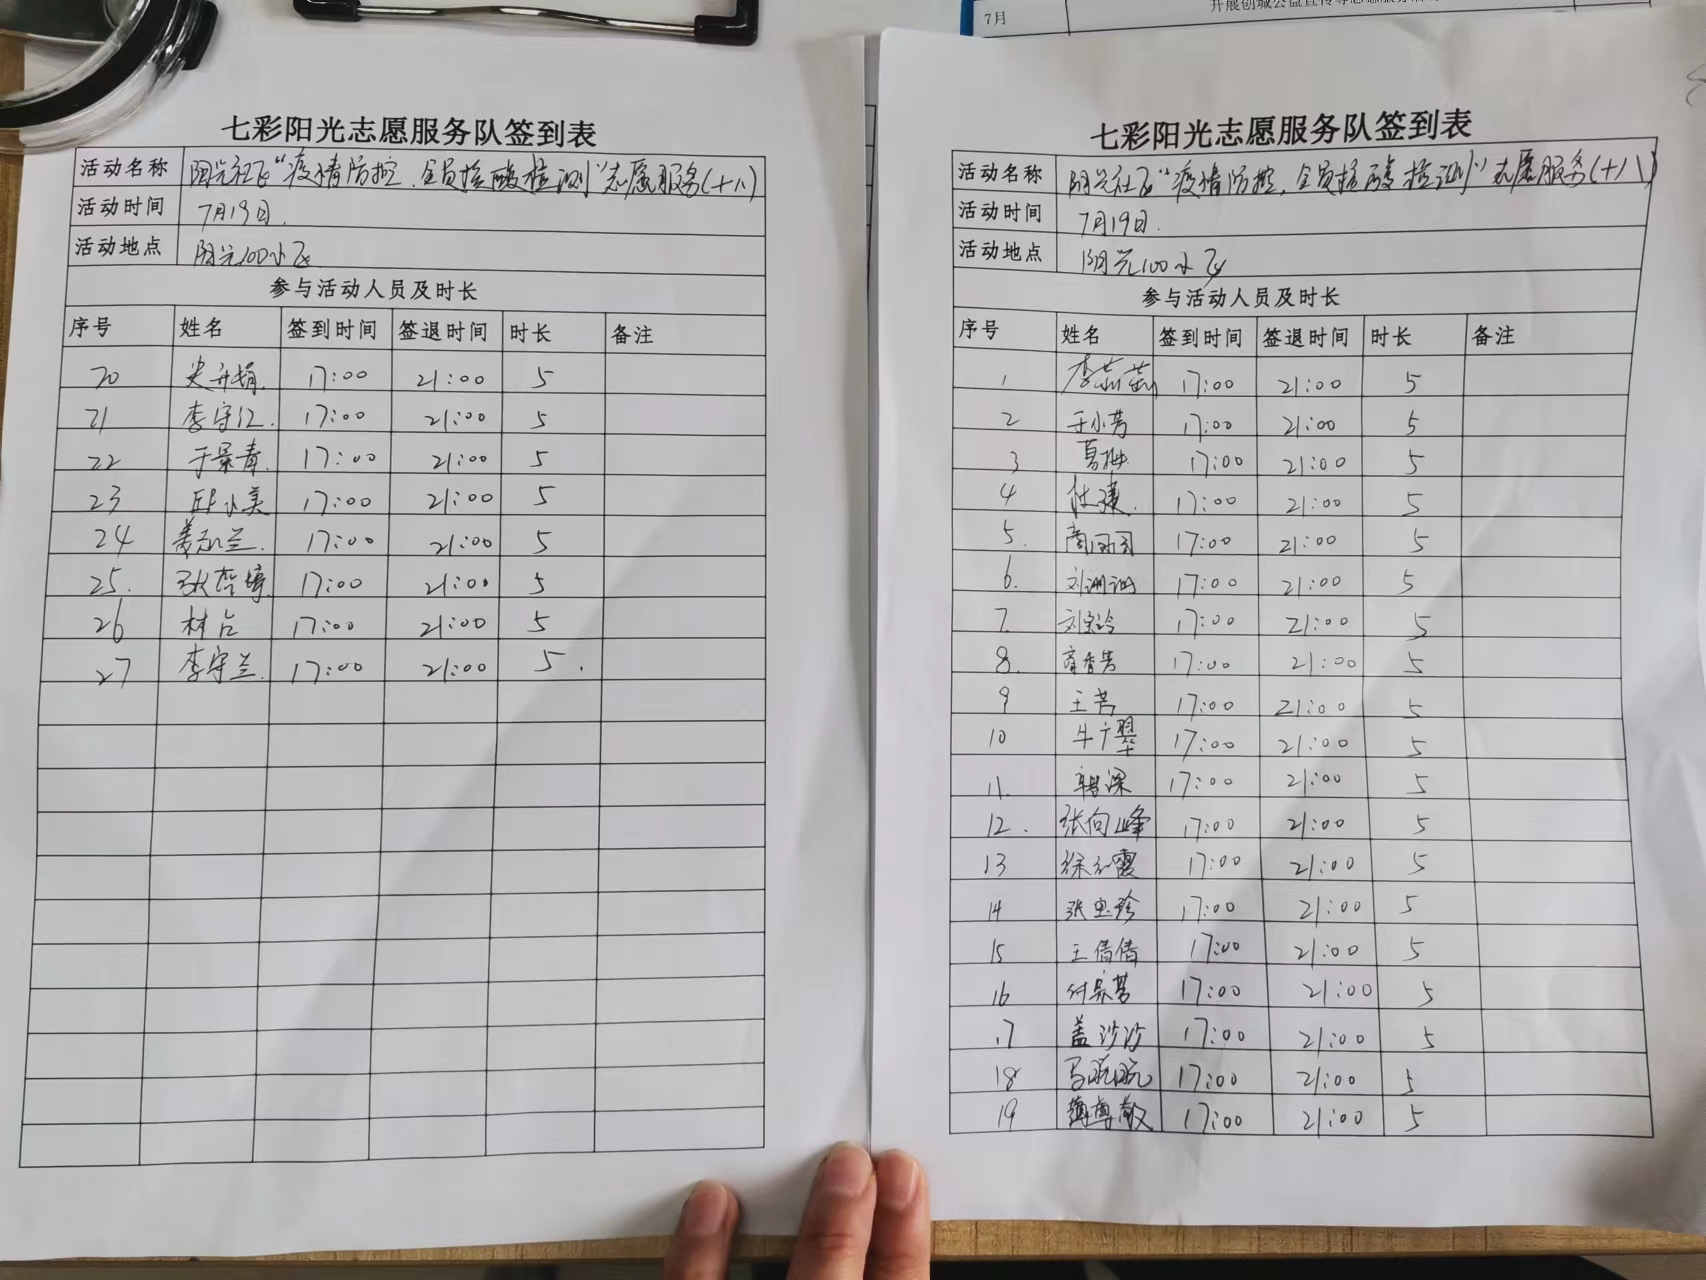 7月
开展创城公益宣传等志愿服务活动
七彩阳光志愿服务队签到表
活动名称 阳光社区“疫情防控,全员核酸检测”志愿服务(十八)
活动时间 7月19日.
活动地点 阳光100小区
参与活动人员及时长
序号 姓名 签到时间 签退时间 时长 备注
20 史升娟. 17:00 21:00 5
21 李守红. 17:00 21:00 5
22 于景青. 17:00 21:00 5
23 邱小美 17:00 21:00 5
24 姜红兰. 17:00 21:00 5
25. 张哲婷 17:00 21:00 5
26 17:00 21:00 5
27 李守兰. 17:00 21:00 5.
七彩阳光志愿服务队签到表
活动名称 阳光社区“疫情防控,全员核酸检测”志愿服务(十八)
活动时间 7月19日.
活动地点 阳光100小区
参与活动人员及时长
序号 姓名 签到时间 签退时间 时长 备注
1 李莉莉 17:00 21:00 5
2 于小芳 17:00 21:00 5
3 17:00 21:00 5
4 杜建. 17:00 21:00 5
5. 17:00 21:00 5
6. 17:00 21:00 5
7. 刘宝玲 17:00 21:00 5
8. 17:00 21:00 5
9 王芳 17:00 21:00 5
10 牛广翠 17:00 21:00 5
11. 韩深 17:00 21:00 5
12. 张向峰 17:00 21:00 5
13 徐红霞 17:00 21:00 5
14 张忠珍 17:00 21:00 5
15 王倩倩 17:00 21:00 5
16 17:00 21:00 5
17 盖沙沙 17:00 21:00 5
18 马晓晓 17:00 21:00 5
19 17:00 21:00 5